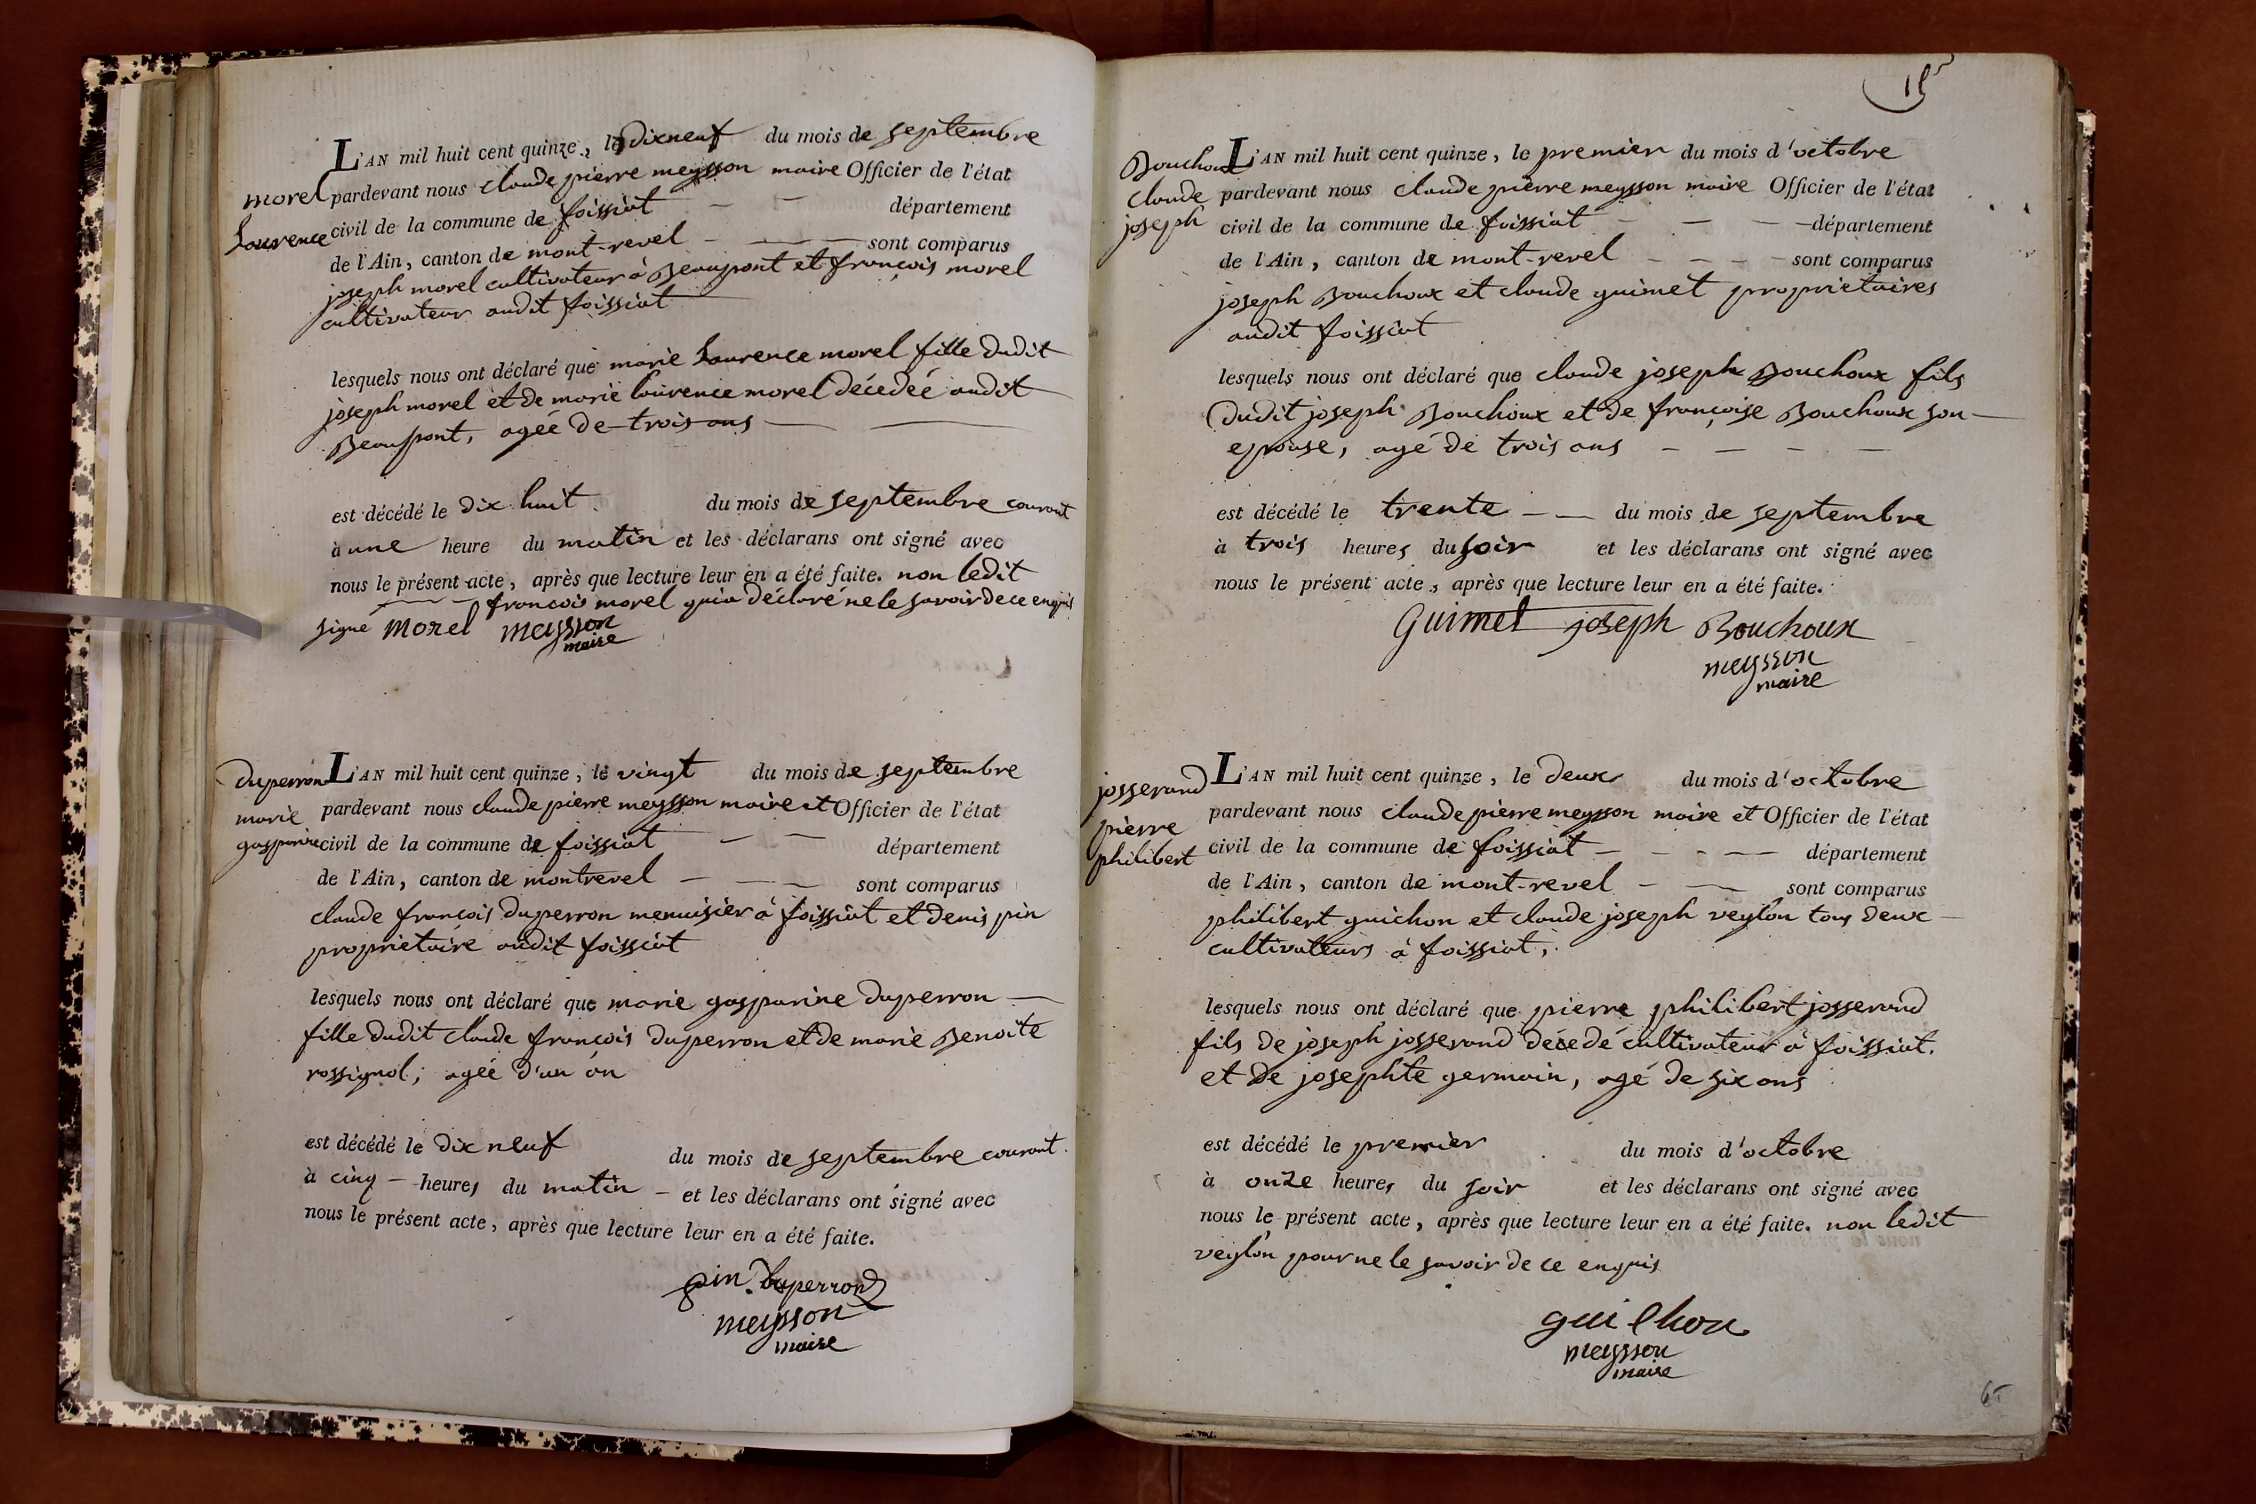 L'AN mil huit cent quinze, le dixneuf du mois de septembre
morel pardevant nous claude pierre meysson maire Officier de l'état
Laurence civil de la commune de foissiat département
de l'Ain, canton de mont-revel sont comparus
joseph morel cultivateur à Beaupont et françois morel
cultivateur audit foissiat
lesquels nous ont déclaré que marie Laurence morel fille dudit
joseph morel et de marie laurence morel décédée audit
Beaupont, agée de trois ans
est décédé le dix huit du mois de septembre courant
à une heure du matin et les déclarans ont signé avec
nous le présent acte, après que lecture leur en a été faite. non ledit
françois morel qui a déclaré ne le savoir de ce enquis
signe morel meysson
maire
duperron L'AN mil huit cent quinze, le vingt du mois de septembre
marie pardevant nous claude pierre meysson maire et Officier de l'état
gasparine civil de la commune de foissiat département
de l'Ain, canton de montrevel sont comparus
claude françois duperron menuisier à foissiat et denis pin
proprietaire audit foissiat
lesquels nous ont déclaré que marie gasparine duperron
fille dudit claude françois duperron et de marie Benoite
rossignol; agée d'un an
est décédé le dix neuf du mois de septembre courant.
à cinq heures du matin et les déclarans ont signé avec
nous le présent acte, après que lecture leur en a été faite.
pin. duperron
meysson
maire
Bouchoux L'AN mil huit cent quinze, le premier du mois d'octobre
claude pardevant nous claude pierre meysson maire Officier de l'état
joseph civil de la commune de foissiat département
de l'Ain, canton de mont-revel sont comparus
joseph Bouchoux et claude guimet proprietaires
audit foissiat
lesquels nous ont déclaré que claude joseph Bouchoux fils
dudit joseph Bouchoux et de françoise Bouchoux son
epouse, agé de trois ans
est décédé le trente du mois de septembre
à trois heures du soir et les déclarans ont signé avec
nous le présent acte, après que lecture leur en a été faite.
Guimet joseph Bouchoux
meysson
maire
josserand L'AN mil huit cent quinze, le deux du mois d'octobre
pierre pardevant nous claude pierre meysson maire et Officier de l'état
philibert civil de la commune de foissiat département
de l'Ain, canton de mont-revel sont comparus
philibert guichon et claude joseph veylon tous deux
cultivateurs à foissiat,
lesquels nous ont déclaré que pierre philibert josserand
fils de joseph josserand décedé cultivateur à foissiat.
et de josephte germain, agé de six ans
est décédé le premier du mois d'octobre
à onze heures du soir et les déclarans ont signé avec
nous le présent acte, après que lecture leur en a été faite. non ledit
veylon pour ne le savoir de ce enquis
guichon
meysson
maire